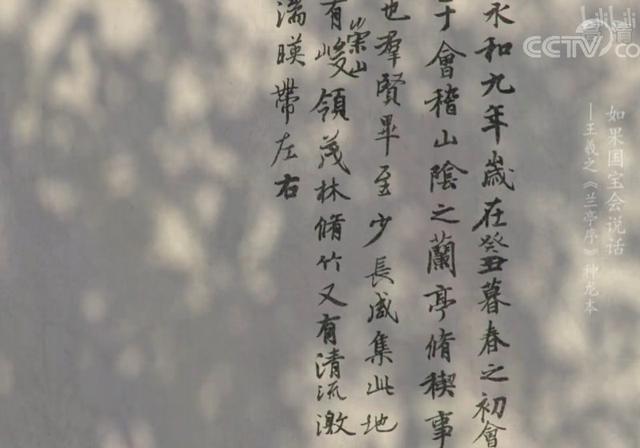 永和九年歲在癸丑暮春之初會
于會稽山陰之蘭亭脩稧事
也羣賢畢至少長咸集此地
有崇山峻領茂林脩竹又有清流激
湍暎帶左右
CCTV
如果国宝会说话
—王羲之《兰亭序》神龙本